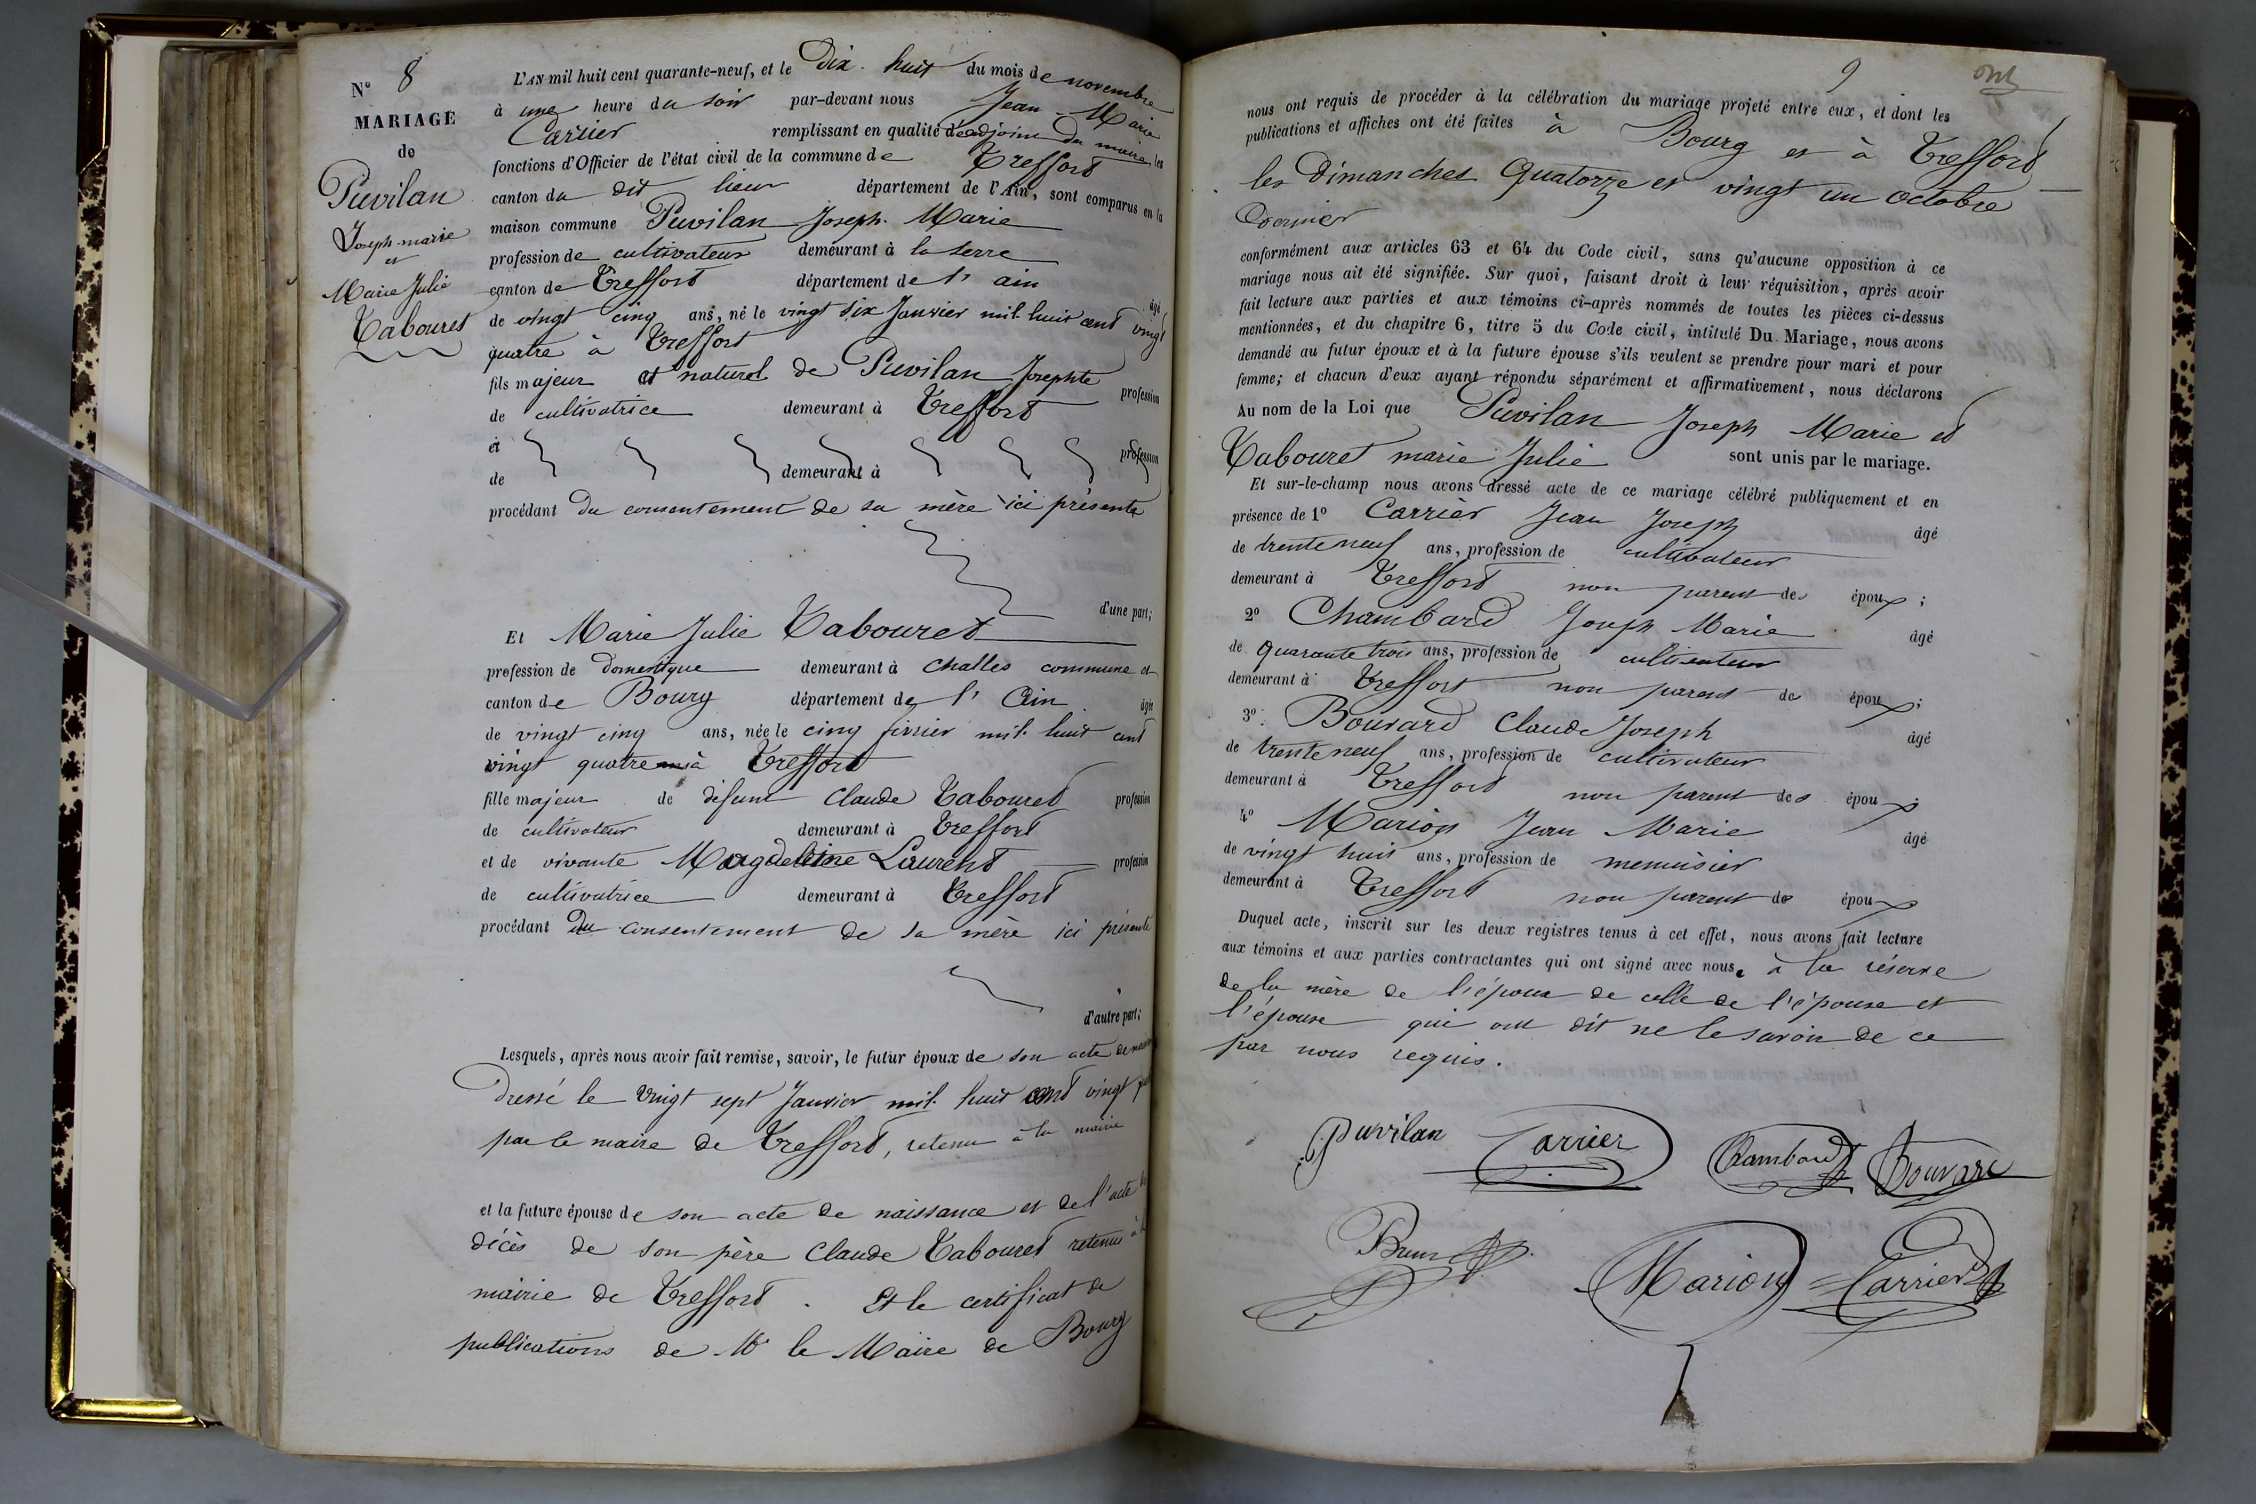 N° 8
MARIAGE
de
Puvilan
Joseph marie
et
Marie Julie
Tabouret
L'AN mil huit cent quarante-neuf, et le Dix-huit du mois de novembre
à une heure du soir par-devant nous Jean-Marie
Carrier remplissant en qualité d'adjoint du maire les
fonctions d'Officier de l'état civil de la commune de Treffort
canton du dit lieu département de l'Ain, sont comparus en la
maison commune Puvilan Joseph-Marie
profession de cultivateur demeurant à la serre
canton de Treffort département de l'ain âgé
de vingt cinq ans, né le vingt six Janvier mil huit cent vingt
quatre à Treffort
fils majeur et naturel de Puvilan Josephte profession
de cultivatrice demeurant à Treffort
et profession
de demeurant à
procédant du consentement de sa mère ici présente
d'une part;
Et Marie Julie Tabouret
profession de domestique demeurant à challes commune et
canton de Bourg département de l'Ain âgée
de vingt cinq ans, née le cinq février mil huit cent
vingt quatre à Treffort
fille majeur de défunt Claude Tabouret profession
de cultivateur demeurant à Treffort
et de vivante Magdeleine Laurent profession
de cultivatrice demeurant à Treffort
procédant du consentement de sa mère ici présente
d'autre part;
Lesquels, après nous avoir fait remise, savoir, le futur époux de son acte de
Dressé le vingt sept Janvier mil huit cent vingt
par le maire de Treffort, retenu à la mairie
et la future épouse de son acte de naissance et de l'acte
décès de son père Claude Tabouret retenus à
mairie de Treffort. Et le certificat de
publications de Mr le Maire de Bourg
9
nous ont requis de procéder à la célébration du mariage projeté entre eux, et dont les
publications et affiches ont été faites à Bourg et à Treffort
les Dimanches Quatorze et vingt un octobre
Dernier
conformément aux articles 63 et 64 du Code civil, sans qu'aucune opposition à ce
mariage nous ait été signifiée. Sur quoi, faisant droit à leur réquisition, après avoir
fait lecture aux parties et aux témoins ci-après nommés de toutes les pièces ci-dessus
mentionnées, et du chapitre 6, titre 5 du Code civil, intitulé Du Mariage, nous avons
demandé au futur époux et à la future épouse s'ils veulent se prendre pour mari et pour
femme; et chacun d'eux ayant répondu séparément et affirmativement, nous déclarons
Au nom de la Loi que Puvilan Joseph Marie et
Tabouret marie Julie sont unis par le mariage.
Et sur-le-champ nous avons dressé acte de ce mariage célébré publiquement et en
présence de 1° Carrier Jean Joseph âgé
de trente neuf ans, profession de cultivateur
demeurant à Treffort non parent des époux;
2° Chambard Joseph Marie âgé
de quarante trois ans, profession de cultivateur
demeurant à Treffort non parent de époux;
3° Bouvard Claude Joseph âgé
de trente neuf ans, profession de cultivateur
demeurant à Treffort non parent des époux;
4° Marion Jean Marie âgé
de vingt huit ans, profession de menuisier
demeurant à Treffort non parent des époux
Duquel acte, inscrit sur les deux registres tenus à cet effet, nous avons fait lecture
aux témoins et aux parties contractantes qui ont signé avec nous, à la réserve
de la mère de l'époux de celle de l'épouse et
l'épouse qui ont dit ne le savoir de ce
par nous requis.
Puvilan Carrier Chambard Bouvard
Brun Marion Carrier